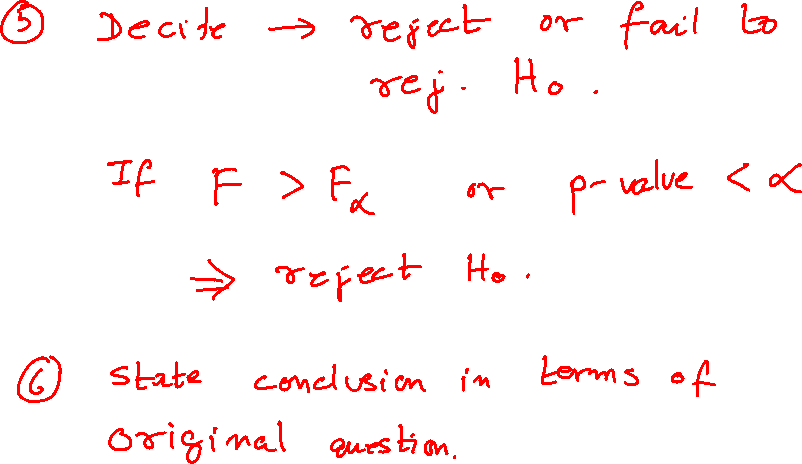 ⑤ Decide → reject or fail to
rej. H₀.
If F > Fα or p-value < α
⇒ reject H₀.
⑥ state conclusion in terms of
original question.